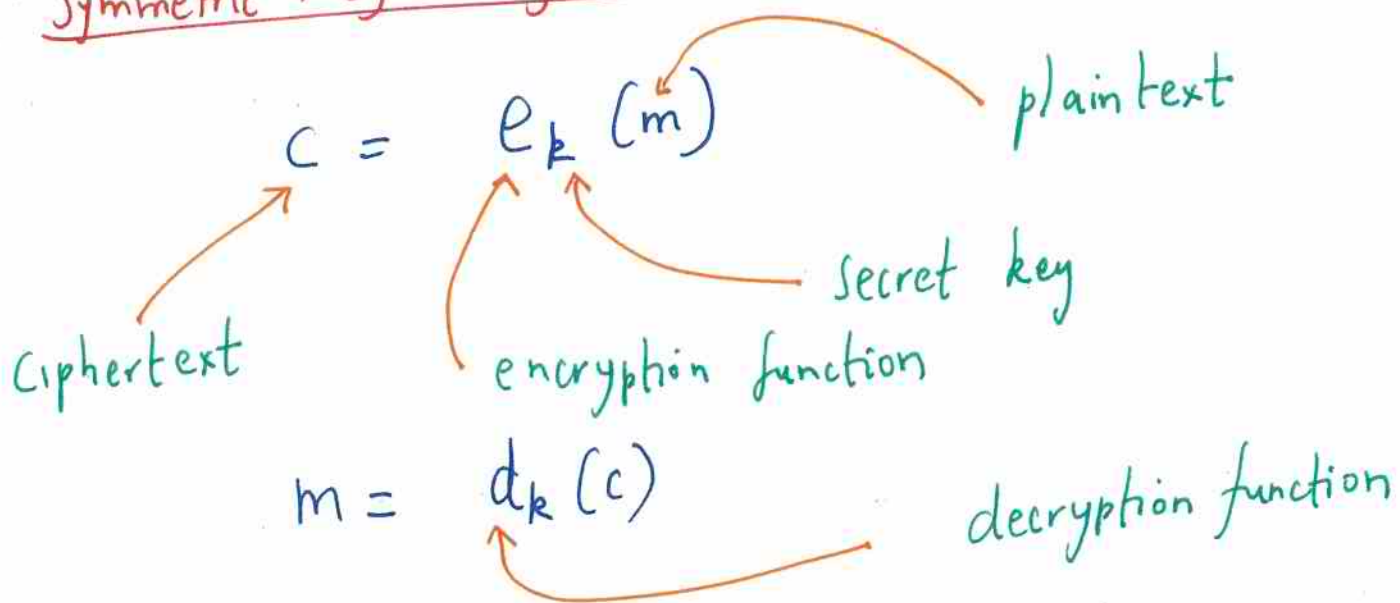 Symmetric
c = e_k (m)
plaintext
secret key
ciphertext
encryption function
m = d_k (c)
decryption function